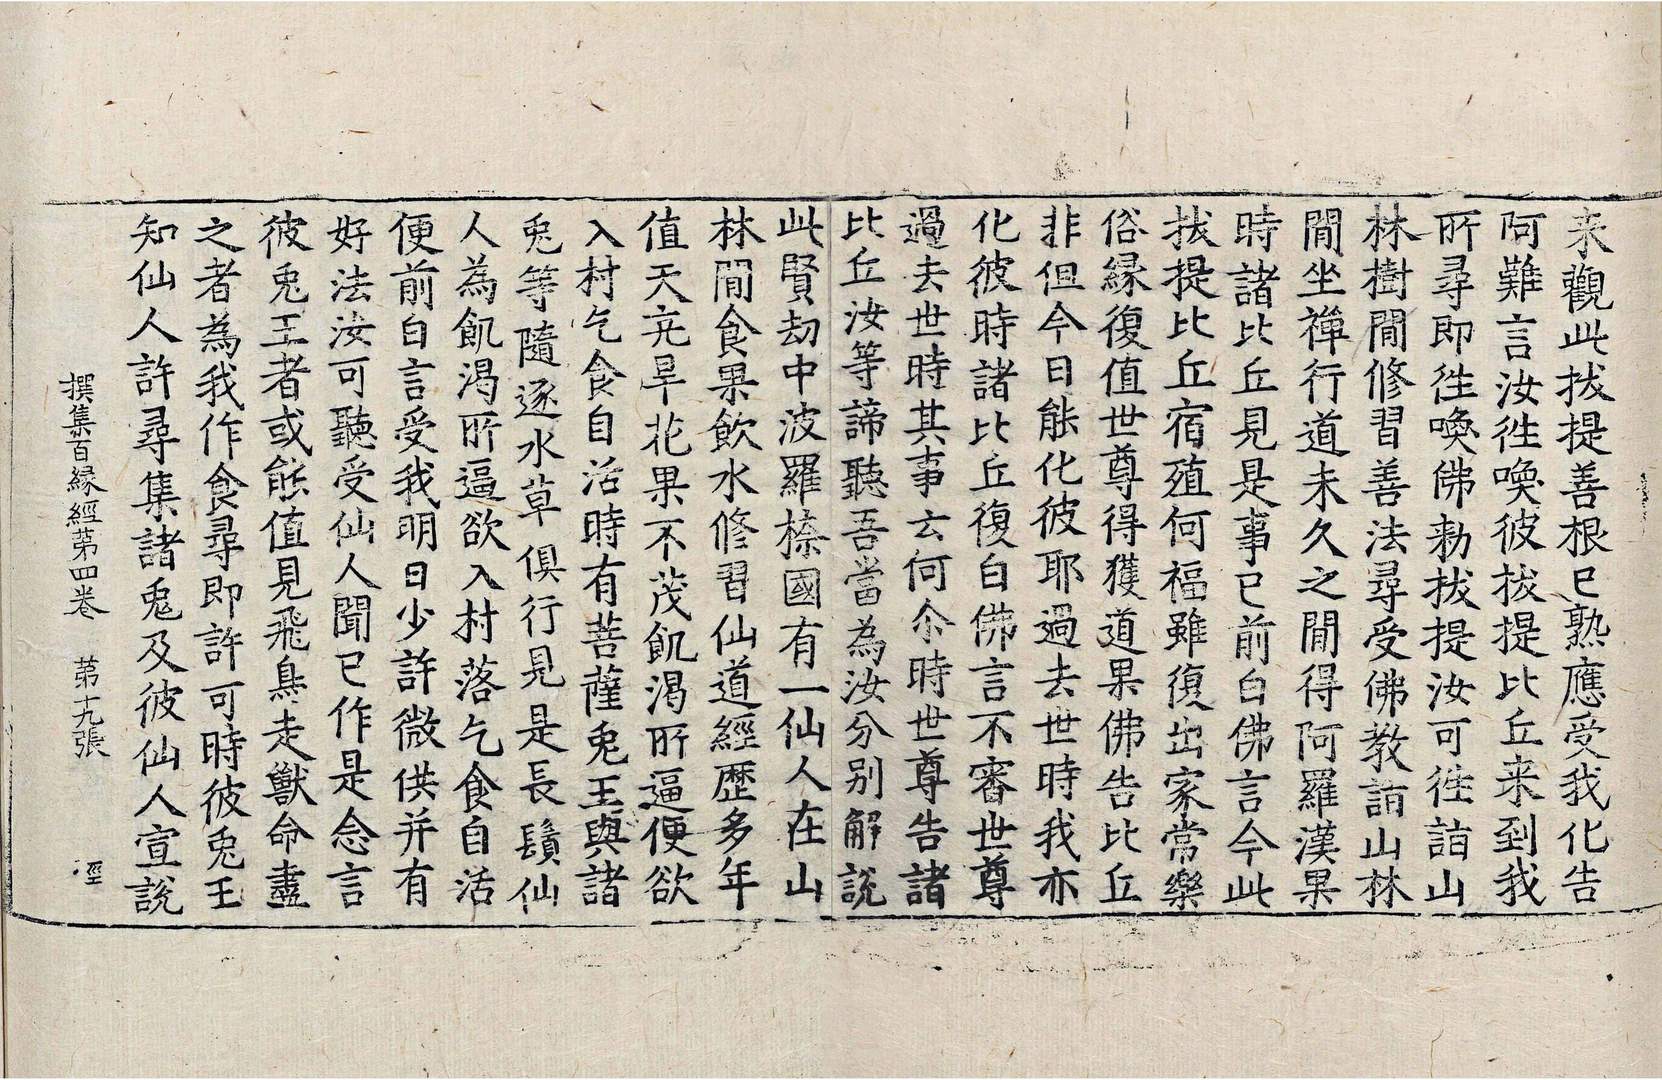 来觀此拔提善根已熟應受我化告
阿難言汝徃喚彼拔提比丘来到我
所尋即徃喚佛勑拔提汝可徃詣山
林樹閒修習善法尋受佛教詣山林
閒坐禪行道未久之閒得阿羅漢果
時諸比丘見是事已前白佛言今此
拔提比丘宿殖何福雖復出家常樂
俗縁復值世尊得獲道果佛告比丘
非但今日能化彼耶過去世時我亦
化彼時諸比丘復白佛言不審世尊
過去世時其事云何尒時世尊告諸
比丘汝等諦聽吾當為汝分别解說
此賢劫中波羅㮈國有一仙人在山
林閒食果飲水修習仙道經歷多年
值天亢旱花果不茂飢渴所逼便欲
入村乞食自活時有菩薩兎王與諸
兎等隨逐水草俱行見是長鬚仙
人為飢渴所逼欲入村落乞食自活
便前白言受我明日少許微供并有
好法汝可聽受仙人聞已作是念言
彼兎王者或能值見飛鳥走獸命盡
之者為我作食尋即許可時彼兎王
知仙人許尋集諸兎及彼仙人宣說
撰集百縁經第四卷 第十九張 涇